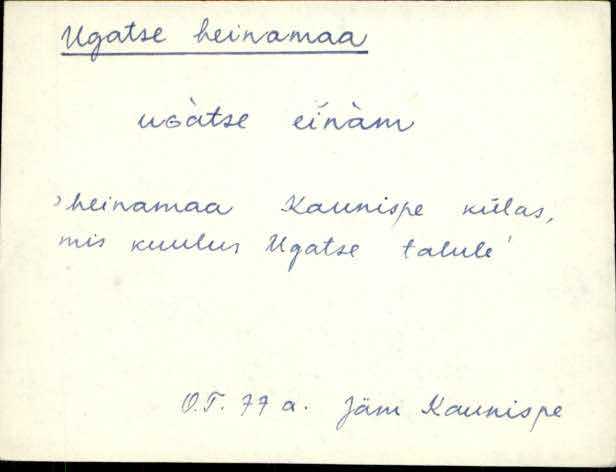 Ugatse heinamaa
uɢàtse eínàm
'heinamaa Kaunispe külas,
mis kuulus Ugatse talule'
O.T. 77 a. Jäm Kaunispe